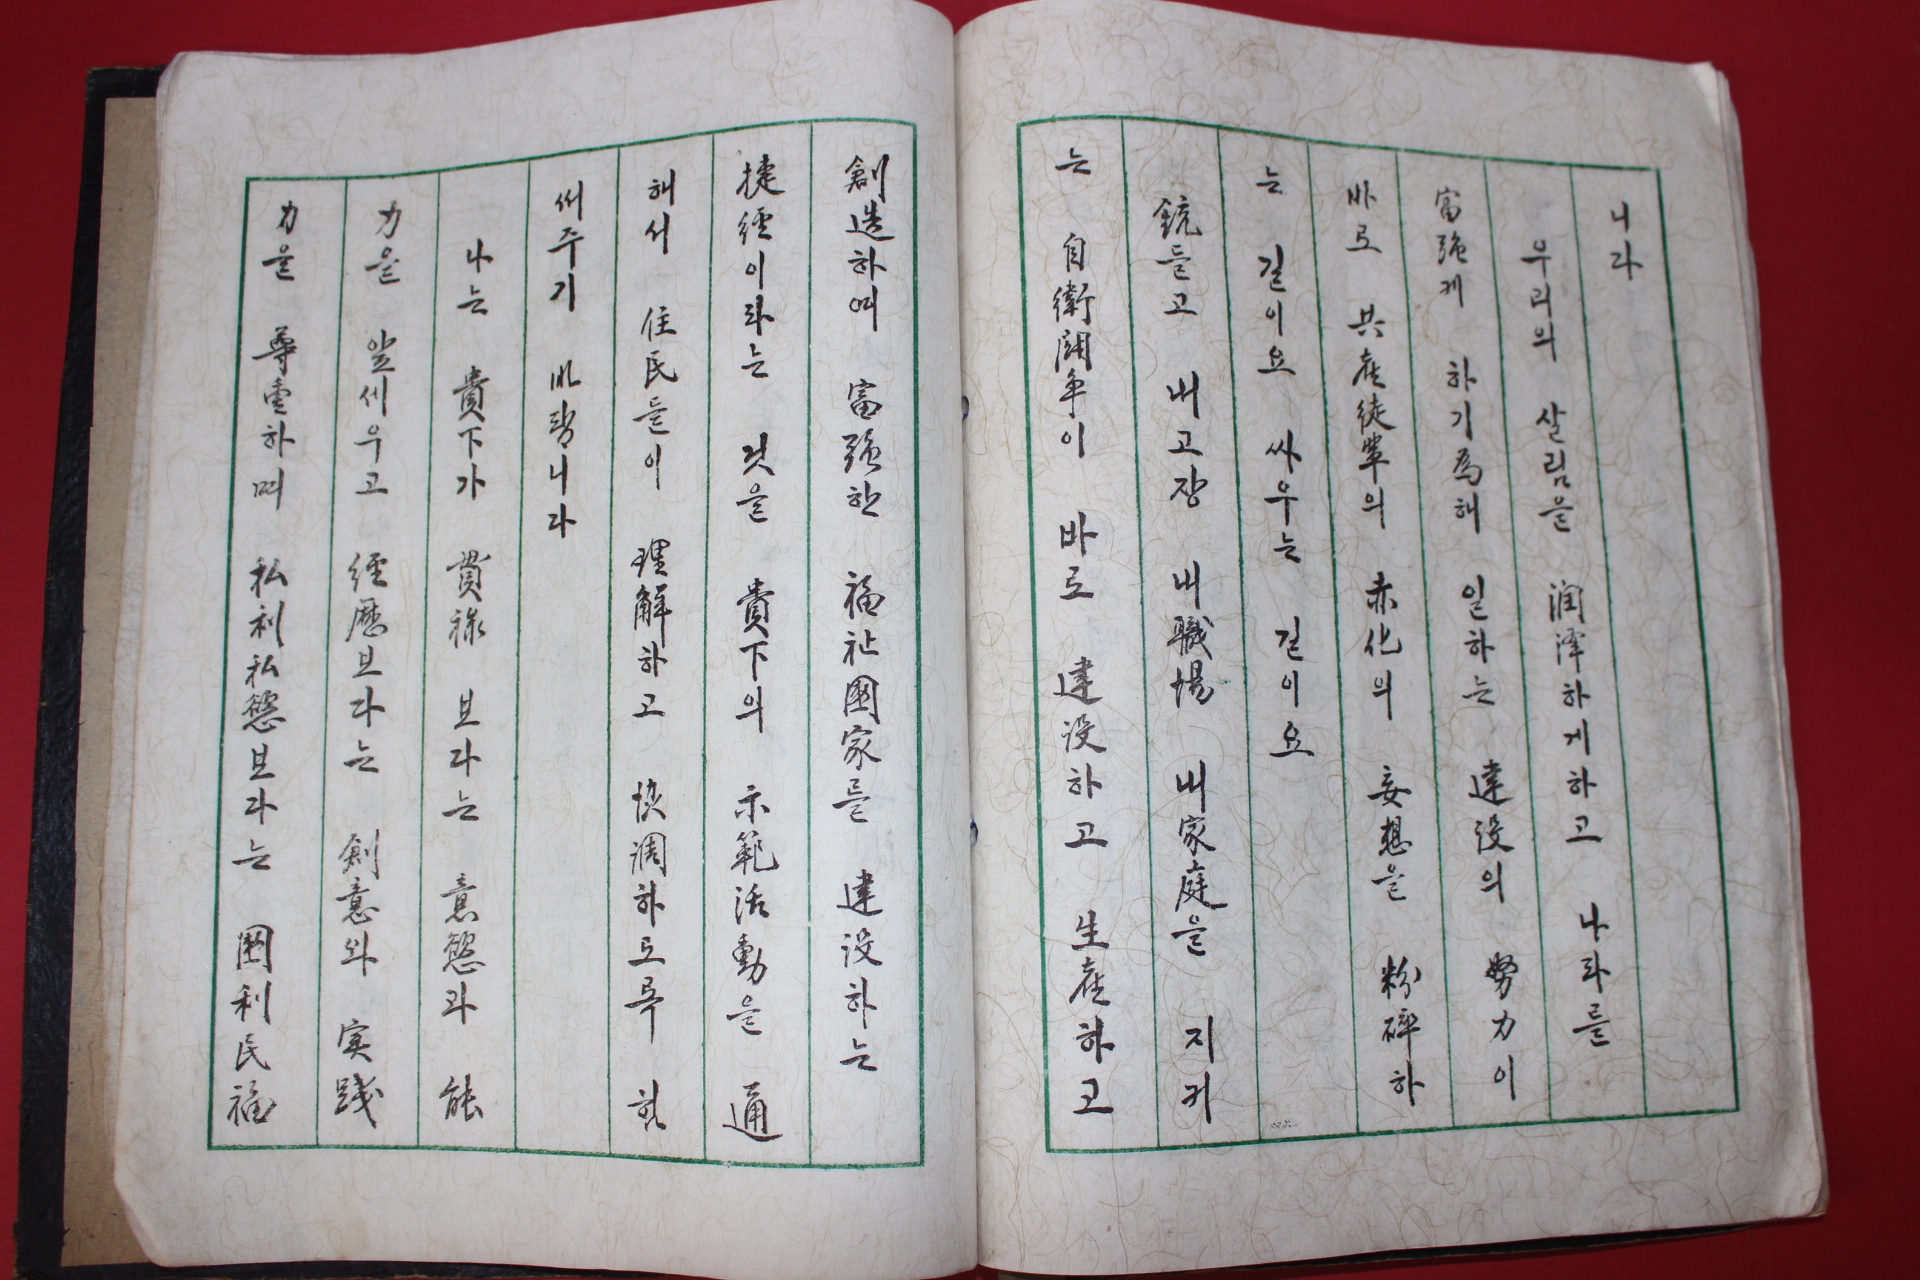 니다
우리의 살림을 润泽하게하고 나라를
富强케 하기爲해 일하는 建設의 努力이
바로 共産徒輩의 赤化의 妄想을 粉碎하
는 길이요 싸우는 길이요
銃들고 내고장 내職場 내家庭을 지키
는 自衛闘争이 바로 建設하고 生産하고
創造하며 富强한 福祉國家를 建設하는
捷徑이라는 것을 貴下의 示範活動을 通
해서 住民들이 理解하고 協調하도록 힘
써주기 바랍니다
나는 貴下가 貫祿 보다는 意慾과 能
力을 앞세우고 經歷보다는 創意와 実践
力을 尊重하며 私利私慾보다는 國利民福